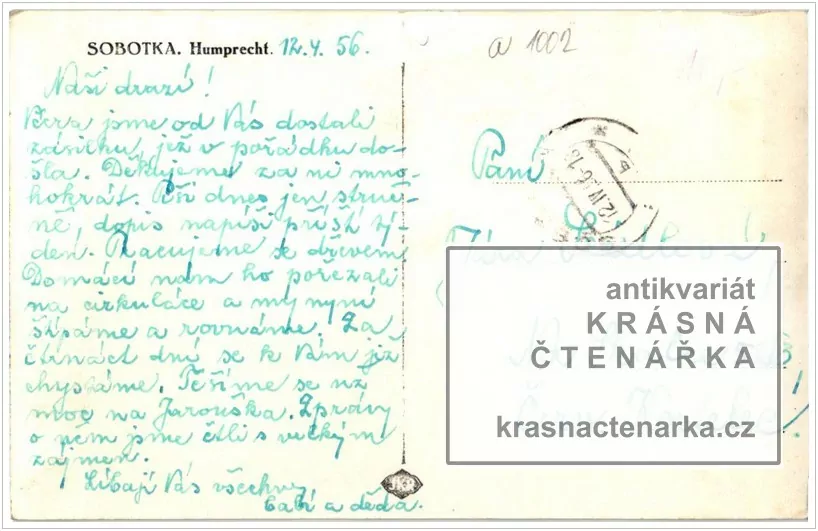 SOBOTKA. Humprecht. 12.4. 56.
a 1002
Naši drazí!
Včera jsme od Vás dostali
zásilku, jež v pořádku do-
šla. Děkujeme za ni mno-
hokrát. Píši dnes jen struč-
ně, dopis napíši příští tý-
den. Pracujeme se dřevem.
Domácí nám ho pořezali
na cirkulárce a my nyní
štípáme a rovnáme. Za
čtrnáct dní se k Vám již
chystáme. Těšíme se už
moc na Jarouška. Zprávy
o něm jsme četli s velkým
zájmem.
Líbají Vás všechny
babi a děda.
Paní
12.IV.56-18
JKO
antikvariát
KRÁSNÁ
ČTENÁŘKA
krasnactenarka.cz